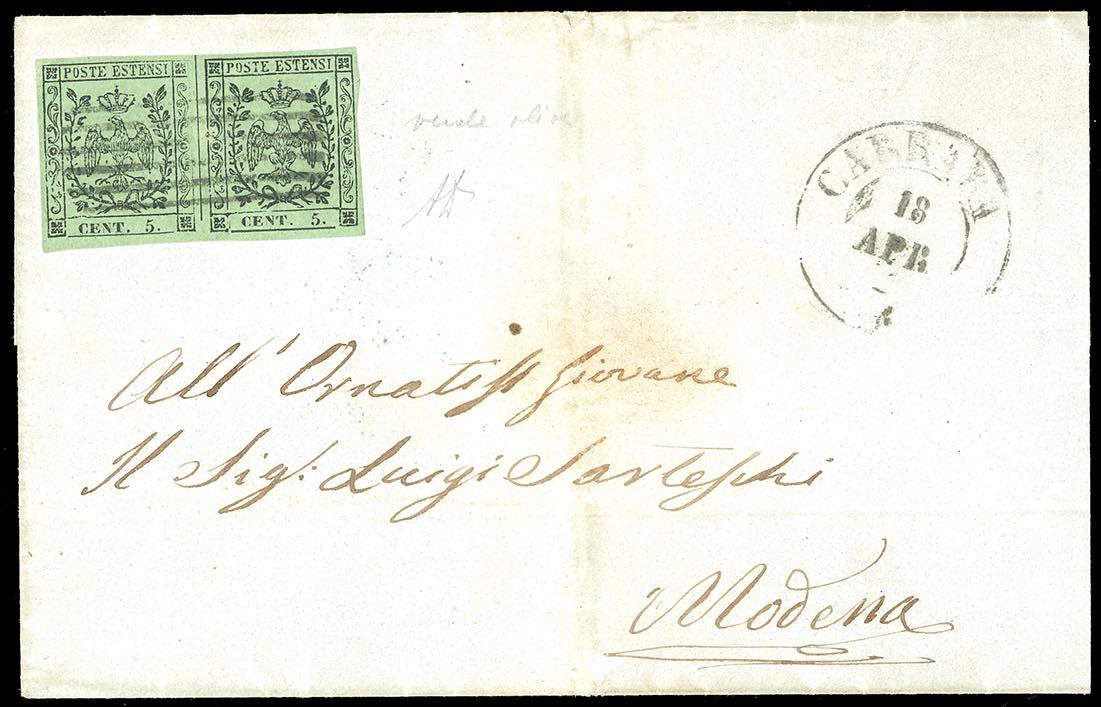 POSTE ESTENSI POSTE ESTENSI
CENT. 5. CENT. 5.
verde oliva
CARRARA
18
APR
All' Ornatiss Giovane
Il Sig: Luigi Sarteschi
Modena